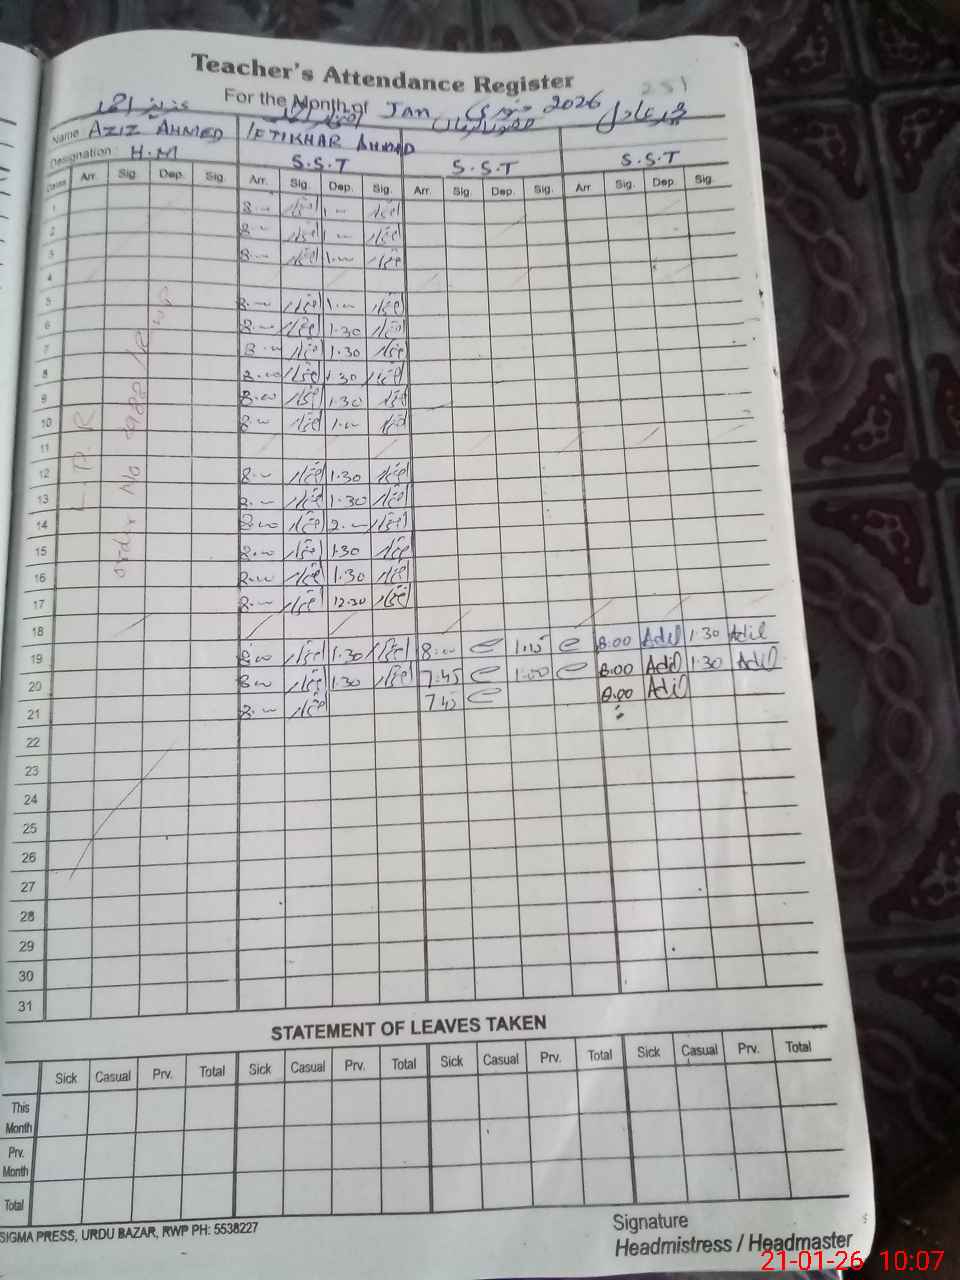 Teacher's Attendance Register
For the Month of Jan جنوری 2026
عزیز احمد افتخار احمد محمد عادل
Name AZIZ AHMED IFTIKHAR AHMAD
Designation: H.M S.S.T S.S.T S.S.T
Dates Arr. Sig. Dep. Sig. Arr. Sig. Dep. Sig. Arr. Sig. Dep. Sig. Arr Sig. Dep. Sig.
1 8.00 افتخار 1.00 افتخار
2 8.00 افتخار 1.00 افتخار
3 8.00 افتخار 1.00 افتخار
4
5 8.00 افتخار 1.00 افتخار
6 8.00 افتخار 1.30 افتخار
7 8.00 افتخار 1.30 افتخار
8 8.00 افتخار 1.30 افتخار
9 8.00 افتخار 1.30 افتخار
10 8.00 افتخار 1.00 افتخار
11
12 8.00 افتخار 1.30 افتخار
13 8.00 افتخار 1.30 افتخار
14 8.00 افتخار 2.00 افتخار
15 8.00 افتخار 1.30 افتخار
16 8.00 افتخار 1.30 افتخار
17 8.00 افتخار 12.30 افتخار
18
19 8.00 افتخار 1.30 افتخار 8.00 1.15 8.00 Adil 1.30 Adil
20 8.00 افتخار 1.30 افتخار 7.45 1.00 8.00 Adil 1.30 Adil
21 8.00 افتخار 7.45 8.00 Adil
22
23
24
25
26
27
28
29
30
31
L.P.R
Order No
STATEMENT OF LEAVES TAKEN
Sick Casual Prv. Total Sick Casual Prv. Total Sick Casual Prv. Total Sick Casual Prv. Total
This Month
Prv. Month
Total
SIGMA PRESS, URDU BAZAR, RWP PH: 5538227
Signature
Headmistress / Headmaster
21-01-26 10:07